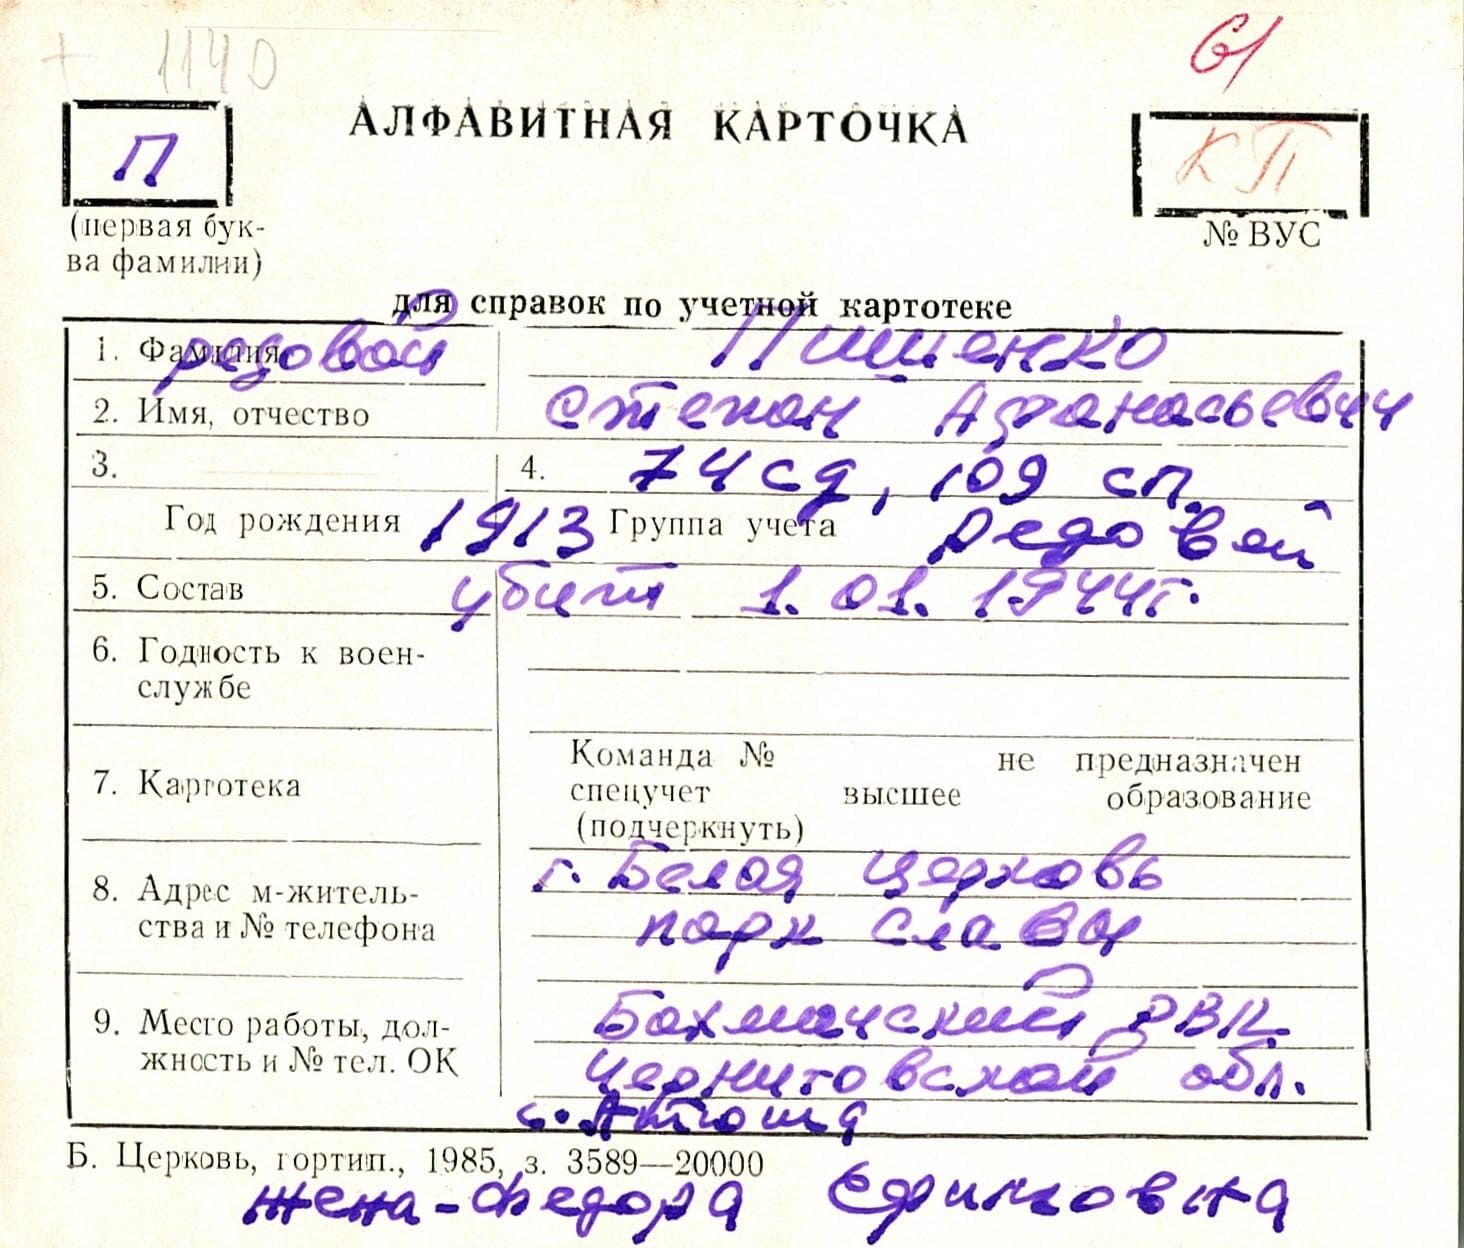 + 1140
61
П
АЛФАВИТНАЯ КАРТОЧКА
КП
(первая бук-
ва фамилии)
№ ВУС
для справок по учетной картотеке
1. Фамилия рядовой Пишенко
2. Имя, отчество Степан Афанасьевич
3. 4. 74 сд, 109 сп.
Год рождения 1913 Группа учета рядовой
5. Состав убит 1.01.1944г.
6. Годность к воен-
службе
Команда № не предназначен
7. Картотека спецучет высшее образование
(подчеркнуть)
8. Адрес м-житель- г. Белая Церковь
ства и № телефона парк Славы
9. Место работы, дол- Бахмачский РВК.
жность и № тел. ОК Черниговской обл.
с. Атюша
Б. Церковь, гортип., 1985, з. 3589—20000
жена - Федора Ефимовна